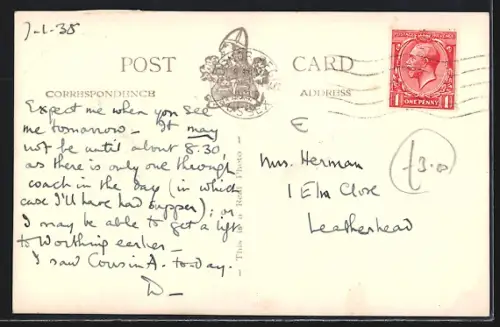 7-1-35
POST CARD
CORRESPONDENCE ADDRESS
POSTAGE REVENUE
ONE PENNY
SUSSEX
Expect me when you see
me tomorrow – It may
not be until about 8.30,
as there is only one through
coach in the day (in which
case I'll have had supper); or
I may be able to get a lift
to Worthing earlier –
I saw Cousin A. to-day.
D –
This is a Real Photo
E
Mrs. Herman
1 Elm Close
Leatherhead
£3.00